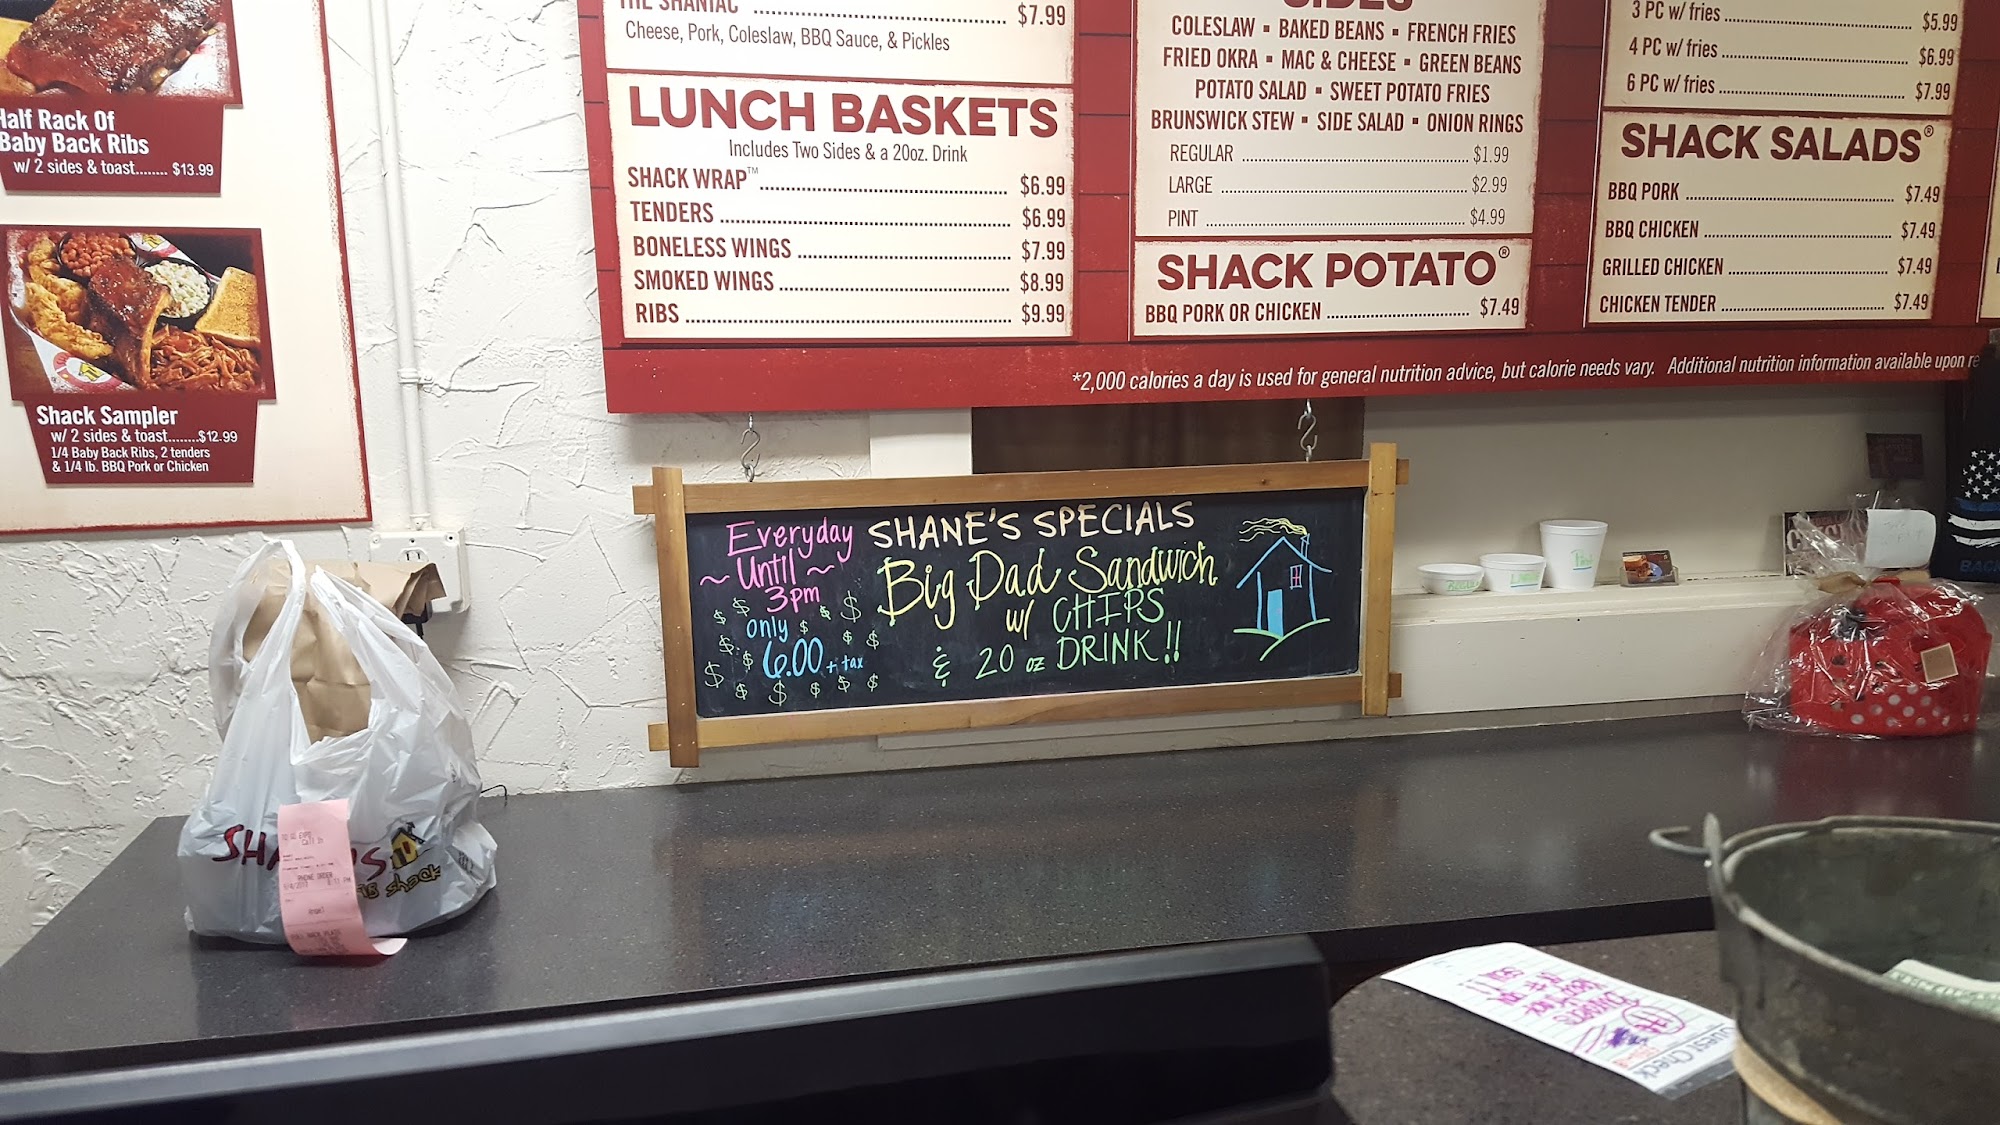 Half Rack Of
Baby Back Ribs
w/ 2 sides & toast........ $13.99
Shack Sampler
w/ 2 sides & toast........$12.99
1/4 Baby Back Ribs, 2 tenders
& 1/4 lb. BBQ Pork or Chicken
THE SHANIAC $7.99
Cheese, Pork, Coleslaw, BBQ Sauce, & Pickles
LUNCH BASKETS
Includes Two Sides & a 20oz. Drink
SHACK WRAP™ $6.99
TENDERS $6.99
BONELESS WINGS $7.99
SMOKED WINGS $8.99
RIBS $9.99
SIDES
COLESLAW ▪ BAKED BEANS ▪ FRENCH FRIES
FRIED OKRA ▪ MAC & CHEESE ▪ GREEN BEANS
POTATO SALAD ▪ SWEET POTATO FRIES
BRUNSWICK STEW ▪ SIDE SALAD ▪ ONION RINGS
REGULAR $1.99
LARGE $2.99
PINT $4.99
SHACK POTATO®
BBQ PORK OR CHICKEN $7.49
3 PC w/ fries $5.99
4 PC w/ fries $6.99
6 PC w/ fries $7.99
SHACK SALADS®
BBQ PORK $7.49
BBQ CHICKEN $7.49
GRILLED CHICKEN $7.49
CHICKEN TENDER $7.49
*2,000 calories a day is used for general nutrition advice, but calorie needs vary. Additional nutrition information available upon re
Everyday
~ Until ~
3pm
only
6.00 + tax
SHANE'S SPECIALS
Big Dad Sandwich
w/ CHIPS
& 20 oz DRINK!!
LARGE
Pint
BACK
Call In
PHONE ORDER
shack
Guest Check